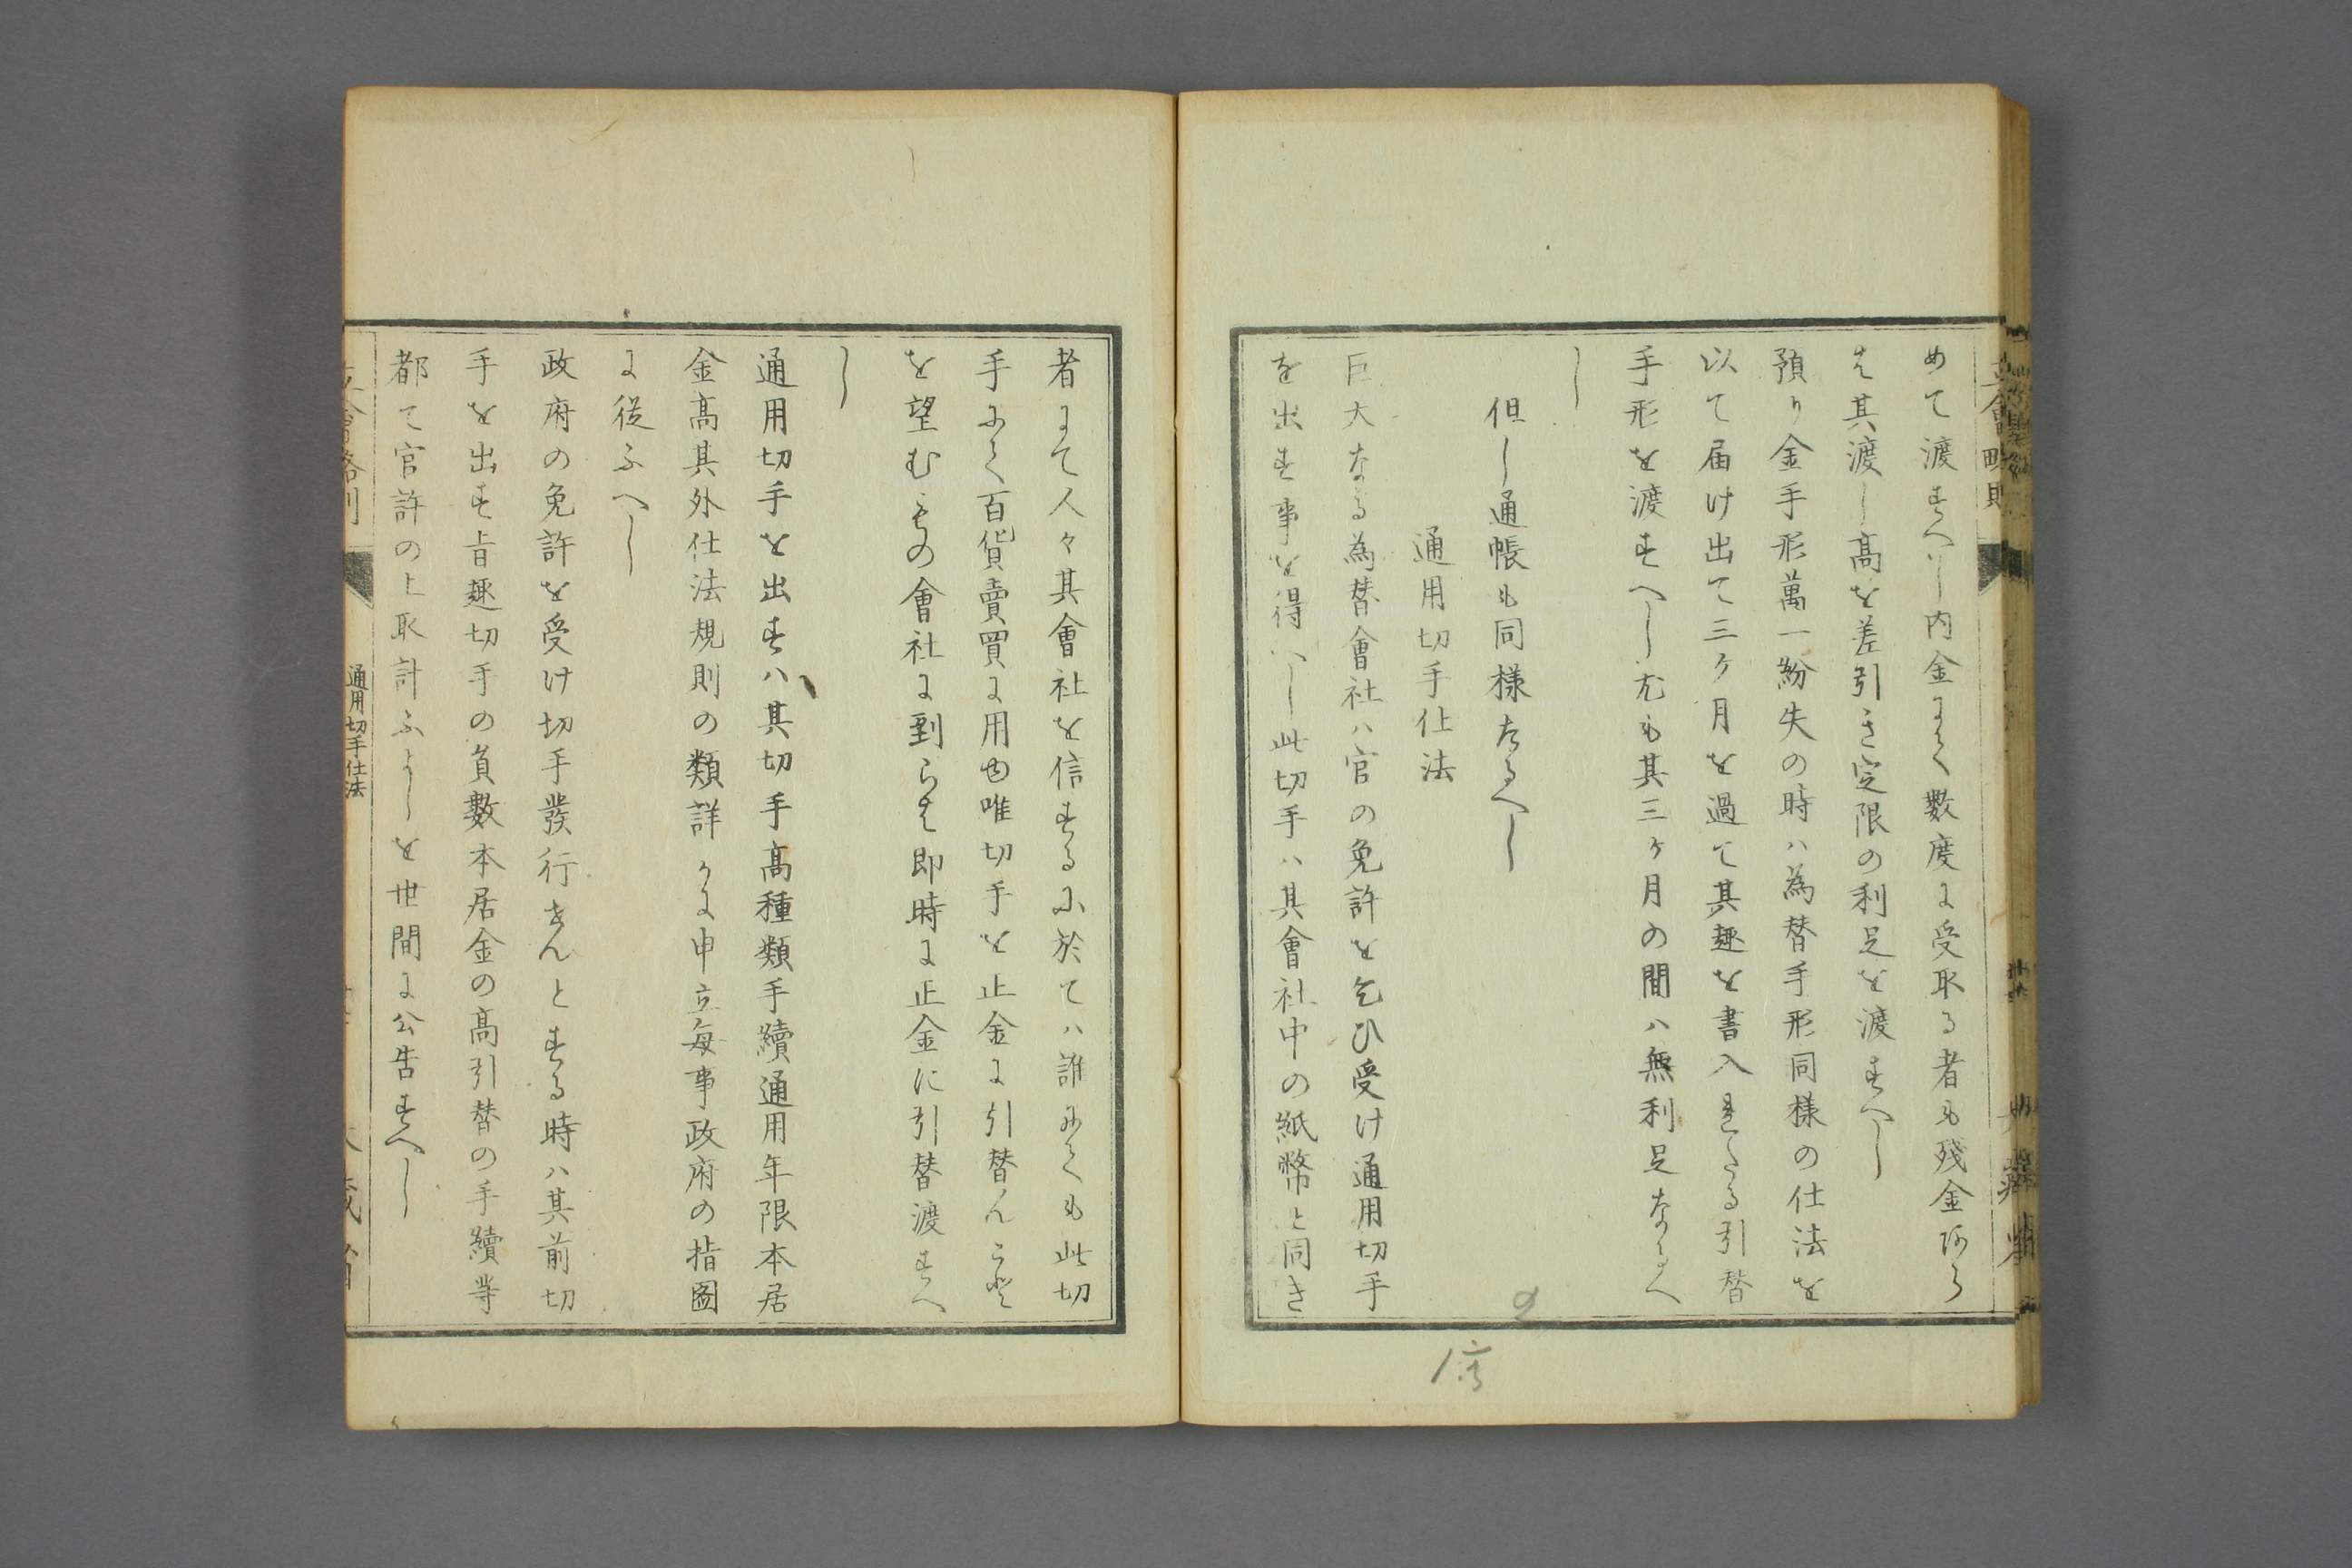 立會略則
めて渡すへし内金にて數度に受取る者も殘金あら
は其渡し髙を差引き定限の利足を渡すへし
預り金手形萬一紛失の時ハ為替手形同様の仕法を
以て届け出て三ケ月を過て其趣を書入れたる引替
手形を渡すへし尤も其三ケ月の間ハ無利足なるへ
し
但し通帳も同様たるへし
通用切手仕法
巨大なる為替會社ハ官の免許を乞ひ受け通用切手
を出す事を得へし此切手ハ其會社中の紙幣と同き
者にて人々其會社を信するに於てハ誰にても此切
手にて百貨賣買に用ゆ唯切手を止金に引替んこと
を望むもの會社に到らは即時に正金に引替渡すへ
し
通用切手を出すハ其切手髙種類手續通用年限本居
金髙其外仕法規則の類詳かに申立每事政府の指圖
に從ふへし
政府の免許を受け切手發行せんとする時ハ其前切
手を出す旨趣切手の負數本居金の髙引替の手續等
都て官許の上取計ふよしを世間に公告すへし
通用切手仕法